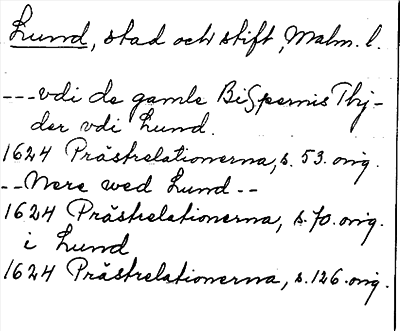 Lund, stad och stift, Malm. l.
---vdi de gamle Bispernis Thj-
der vdi Lund.
1624 Prästrelationerna, s. 53. orig.
--Nere wed Lund--
1624 Prästrelationerna, s. 70. orig.
i Lund
1624 Prästrelationerna, s. 126 orig.